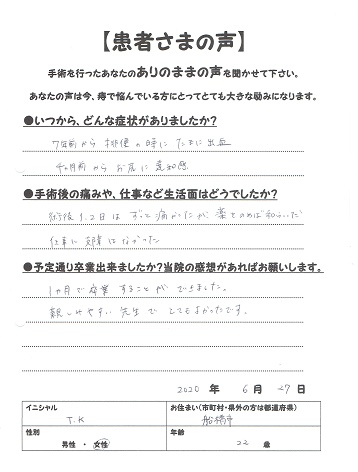 【患者さまの声】
手術を行ったあなたのありのままの声を聞かせて下さい。
あなたの声は今、痔で悩んでいる方にとってとても大きな励みになります。
●いつから、どんな症状がありましたか?
7年前から 排便の時に たまに出血
4ヶ月前から お尻に違和感
●手術後の痛みや、仕事など生活面はどうでしたか?
術後1.2日は ずっと痛かったが 薬でのめば和らいだ
仕事に 支障はなかった
●予定通り卒業出来ましたか?当院の感想があればお願いします。
1ヶ月で卒業することができました。
親しみやすい先生で とてもよかったです。
2020 年 6 月 27 日
イニシャル お住まい(市町村・県外の方は都道府県)
T.K 船橋市
性別 年齢
男性 ・ 女性 22 歳